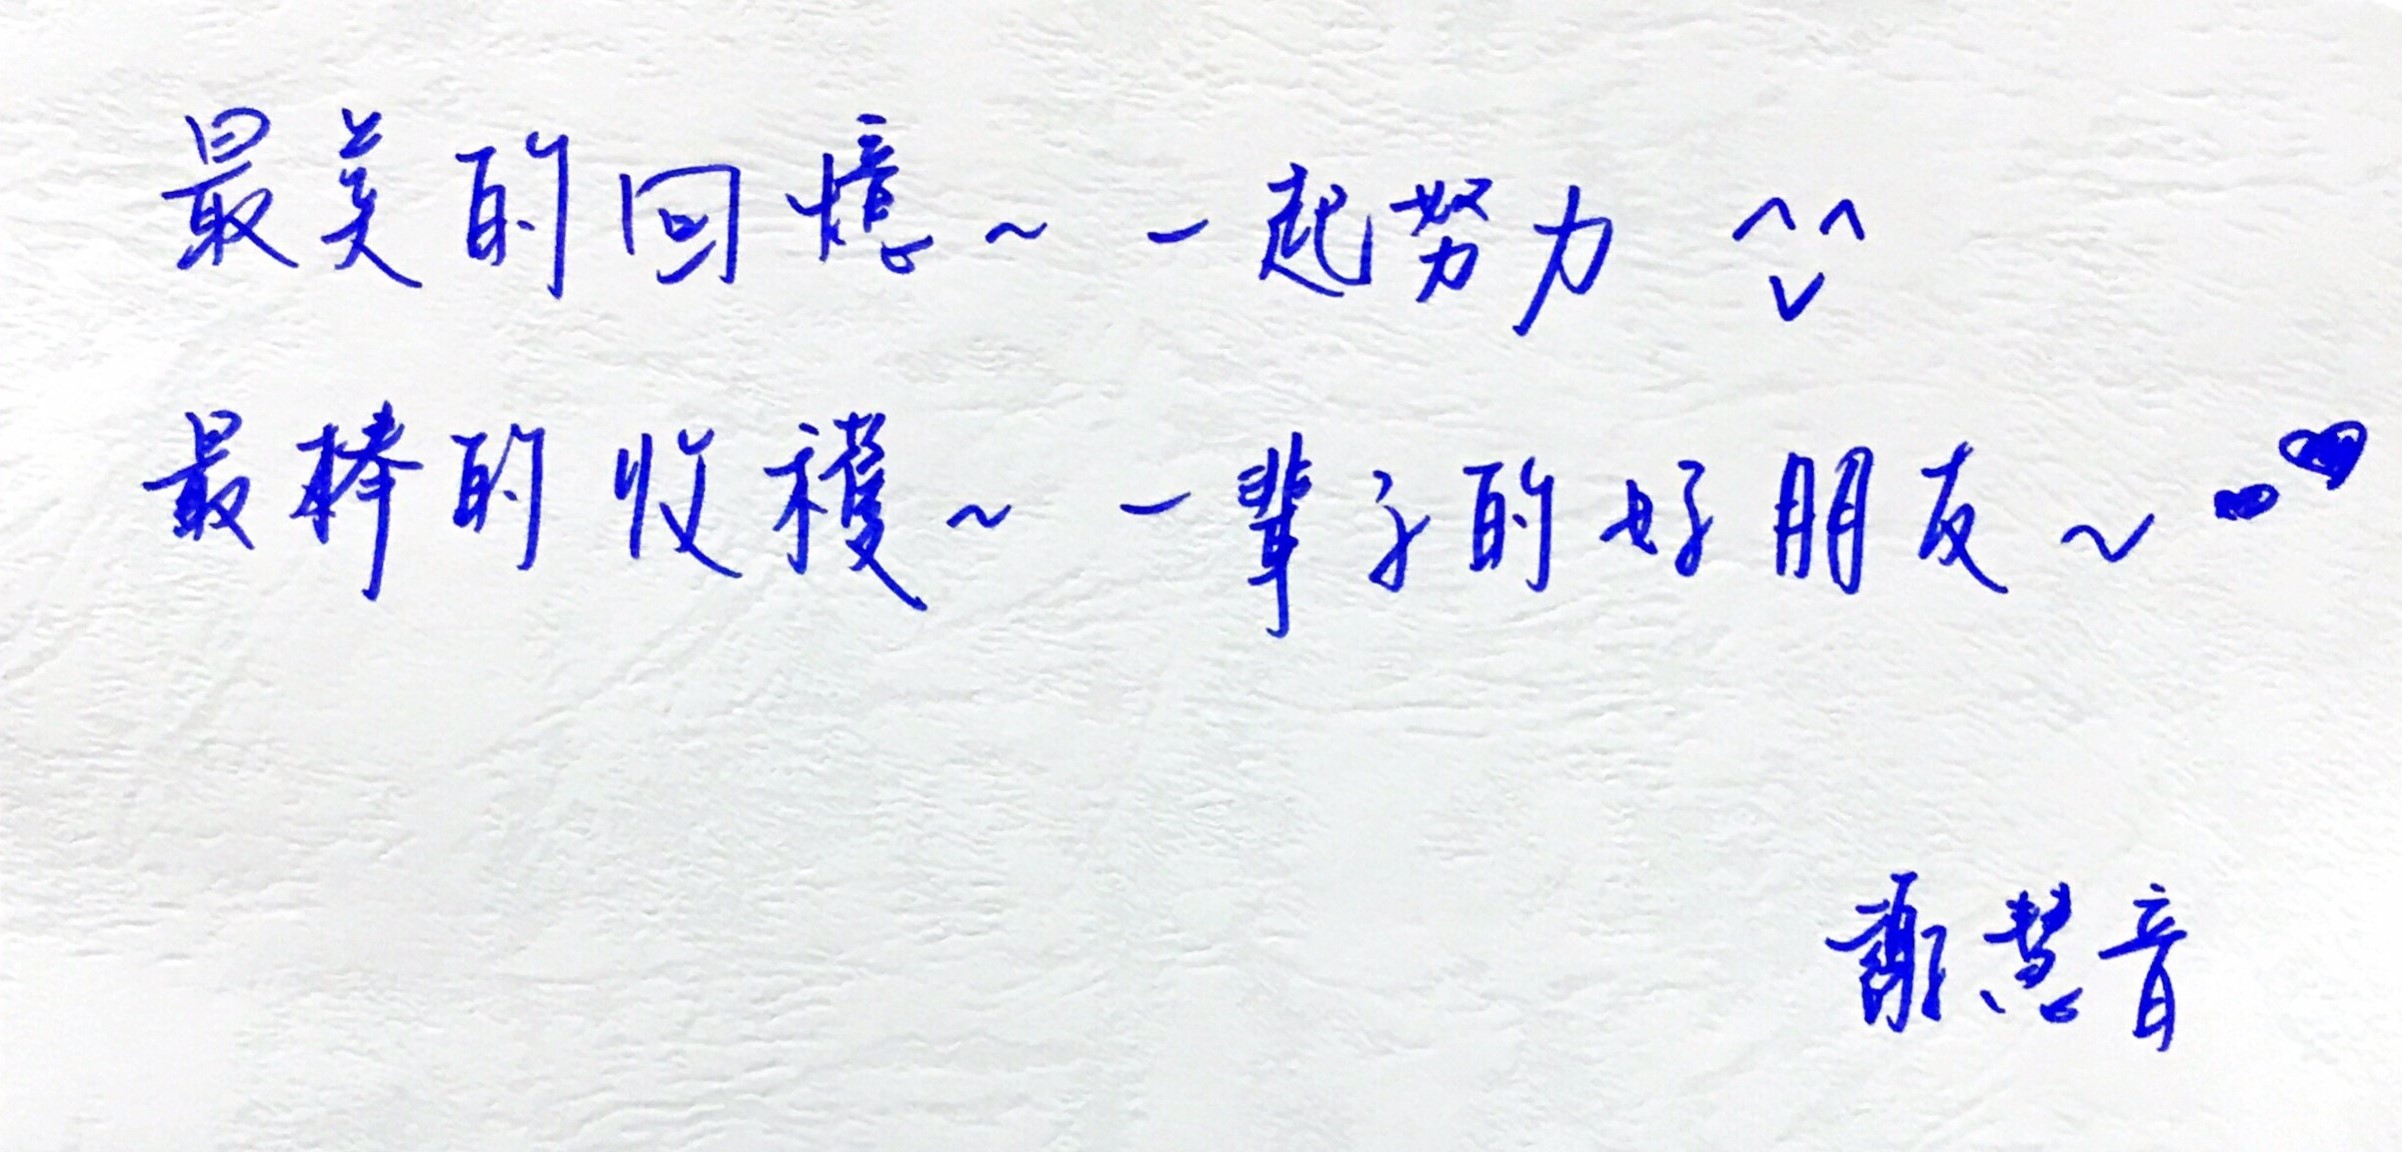 最美的回憶~ 一起努力 ^^
v
最棒的收穫~ 一輩子的好朋友~
謝慧音